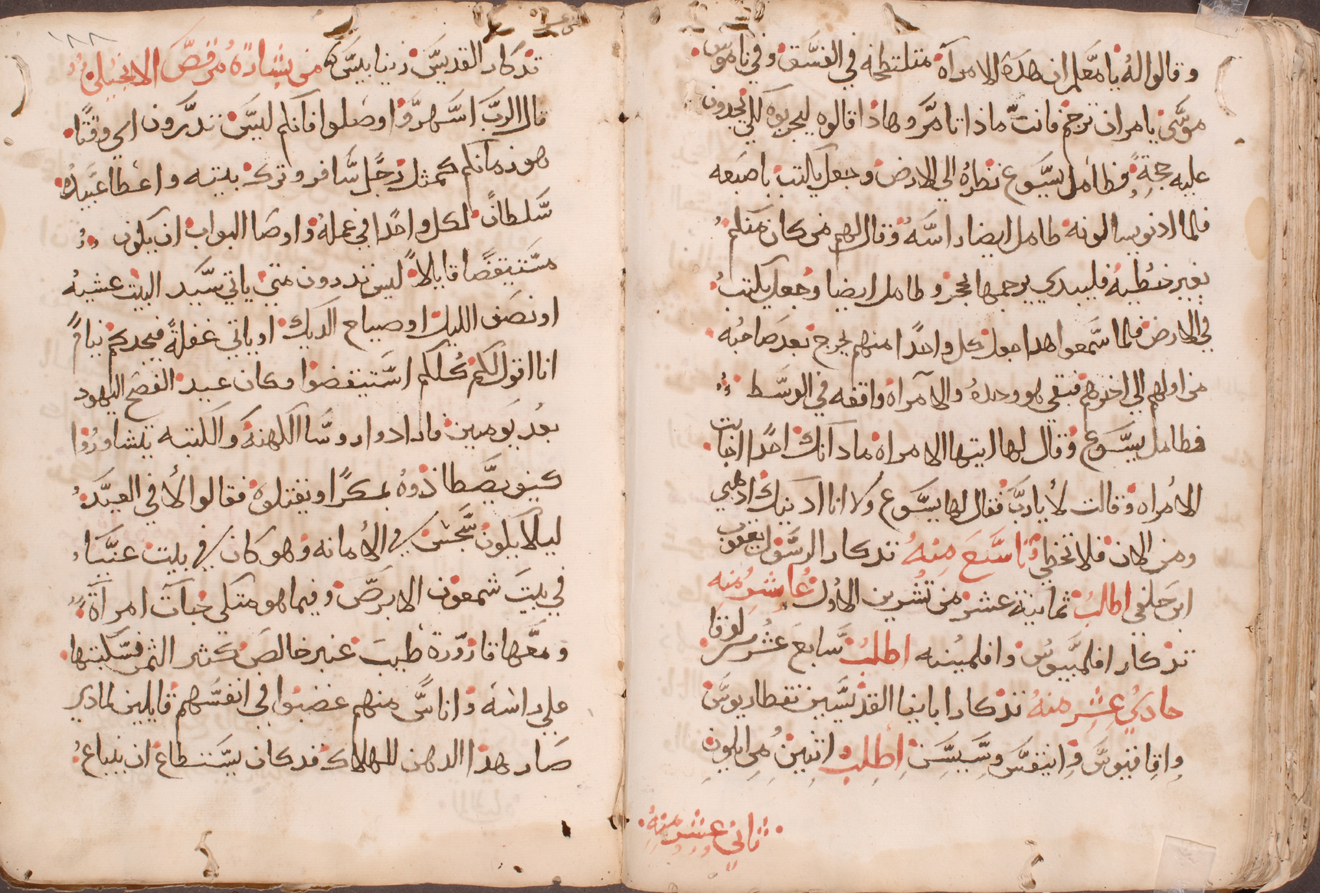 وقالوا له يا معلم ان هذه الامراة متلتطخه في الفسق وفي ناموس
موسى يامر ان ترجم فانت ماذا تامر وهاذا قالوه ليجربوه لكي يجدون
عليه حجة فطامل يسوع نظره الى الارض وجعل يكتب باصبعه
فلما ادنو يسالونه طامل ايضا راسه وقال لهم من كان منكم
بغير خطيه فليبدي يرجمها بحجر وطامل ايضا وجعل يكتب
في الارض فلما سمعوا هدا جعل كل واحدا منهم يخرج بعد صاحبه
من اولهم الى اخرهم فبقى هو وحده والامراه واقفه في الوسط
فطامل يسوع وقال لها ايتها الامراه ماد انك احدا اجابت
الامراه وقالت لا يا رب فقال لها يسوع ولا انا ادينك اذهبي
ومن الان فلا تخطي تاسع منه تدكار الرسول يعقوب
ابن حلفى اطلب ثمانية عشر من تشرين الاول عاشر منه
تدكار افلمبيوس وافلمبينه اطلب سابع عشر لوقا
حادي عشر منه تدكار ابابنا القديسين نقطاريوس
واقاقيوس وانيفس وسيسن اطلب اثنين من ايلون
ثاني عشر منه
تدكار القديس زينا بيس من بشارة مرقص الانجيلي
قال الرب اسهروا وصلوا فانكم ليس تدرون اي وقتا
هو زمانكم كمثل رجل سافر وترك بيته واعطا عبيده
سلطانا لكل واحدا في عمله واوصا البواب ان يكون
مستيقضا قايلا ليس تدرون متى ياتي سيد البيت عشيه
او نصف الليل او صياح الديك او ياتي غفلة فيجدكم نيام
انا اقول لكم كلكم استيقضوا وكان عيد الفصح اليهود
بعد يومين فارادوا روسا الكهنة والكتبه يتشاوروا
كيف يصطادوه بمكرا ويقتلوه فقالوا لا في العيد
ليلا يكون سجس في الامانه وهو كان في بيت عنيا
في بيت شمعون الابرص وفيما هو متكي جات امراة
ومعها قارورة طيب غير خالص كثير الثمن فسكبتها
على راسه واناس منهم غضبوا في انفسهم قايلين لمادي
صار هذا الدهن للهلاك قد كان يستطاع ان يباع